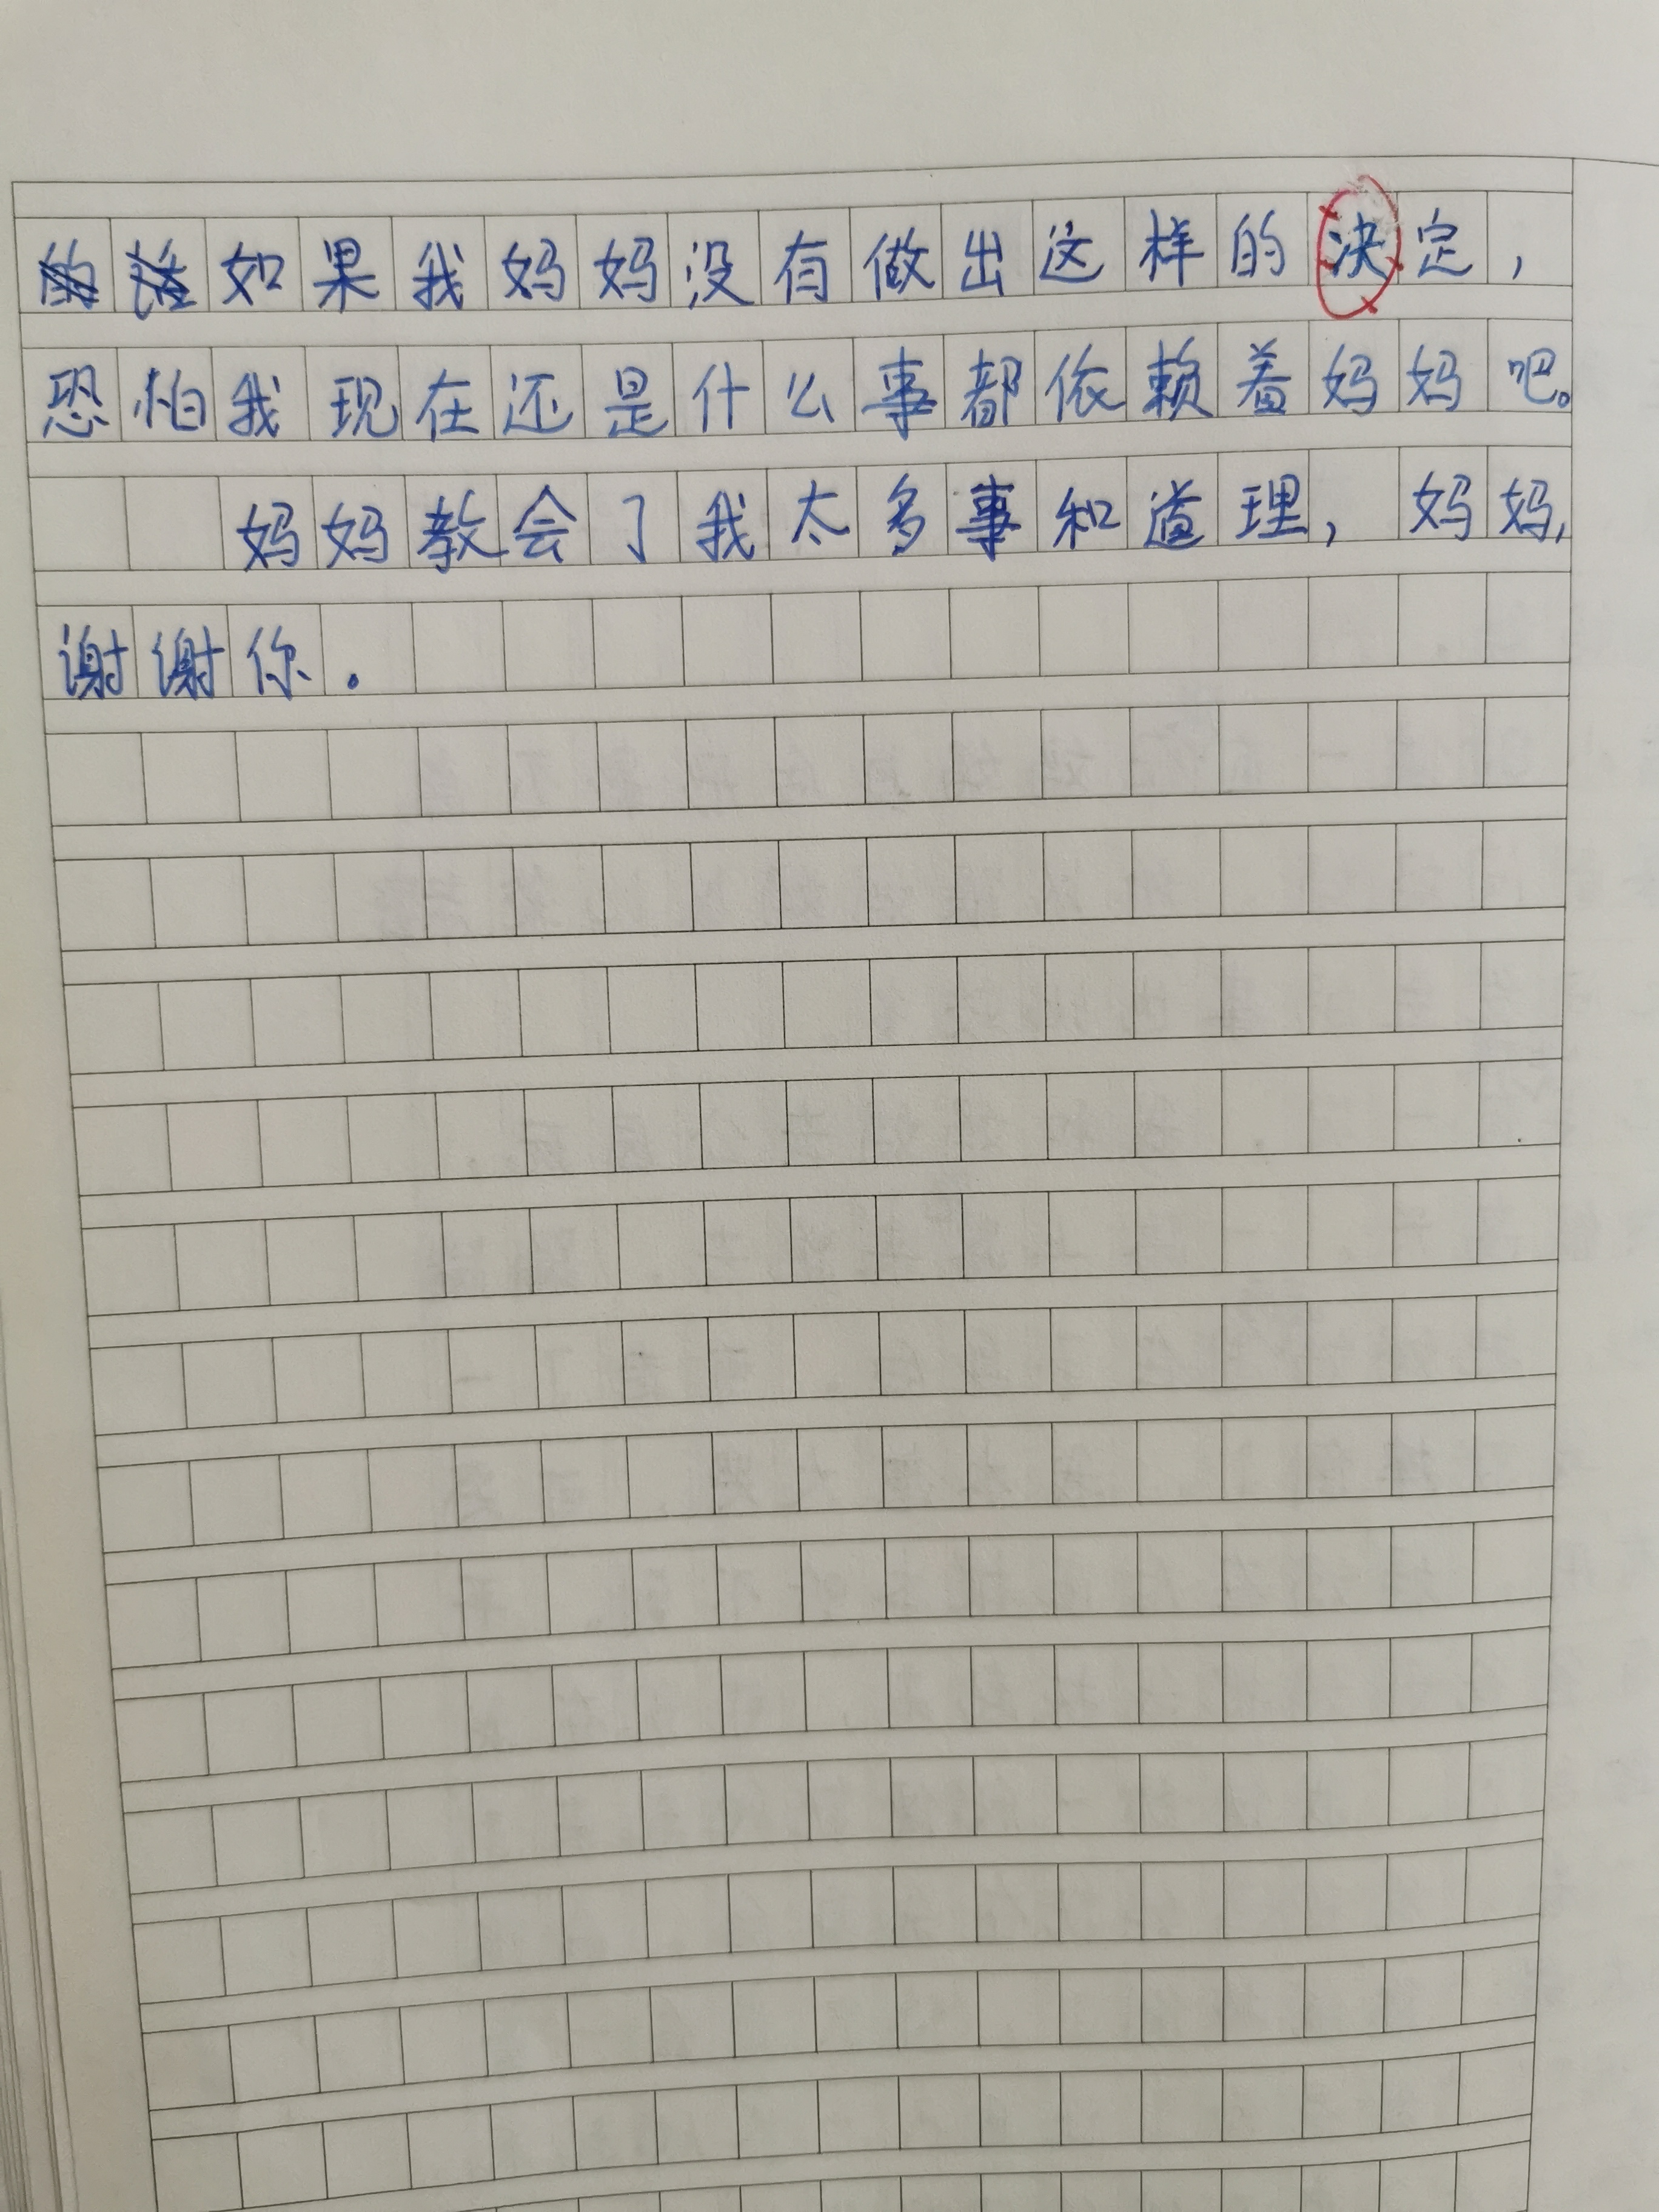 如果我妈妈没有做出这样的决定，
恐怕我现在还是什么事都依赖着妈妈吧。
妈妈教会了我太多事和道理，妈妈，
谢谢你．